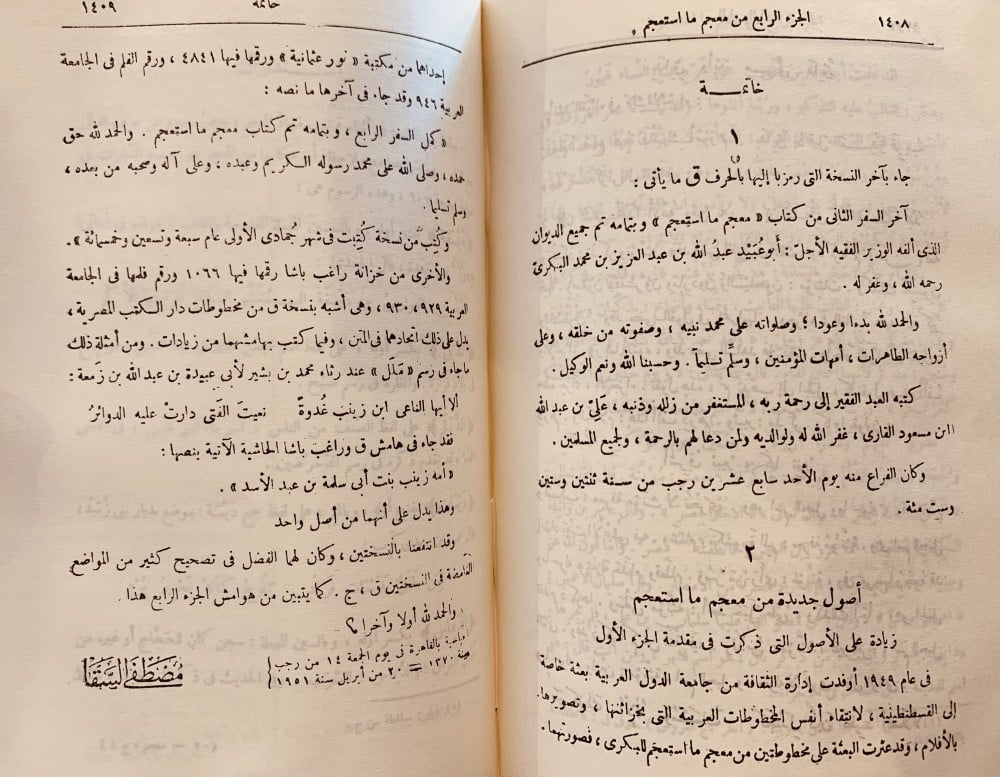 ١٤٠٨
الجزء الرابع من معجم ما استعجم
خاتمـــة
١
جاء بآخر النسخة التى رمزنا إليها بالحرف ق ما يأتى :
آخر السفر الثانى من كتاب « معجم ما استعجم » وبتمامه تم جميع الديوان
الذى ألفه الوزير الفقيه الأجلّ : أبو عُبَيْد عبدُ الله بن عبد العزيز بن محمد البكرىّ
رحمه الله ، وغفر له .
والحمد لله بدءا وعودا ؛ وصلواته على محمد نبيه ، وصفوته من خلقه ، وعلى
أزواجه الطاهرات ، أمهات المؤمنين ، وسلَّم تسليماً . وحسبنا الله ونعم الوكيل .
كتبه العبد الفقير إلى رحمة ربه ، المستغفر من زلله وذنبه ، علىّ بن عبد الله
ابن مسعود القارى ، غفر الله له ولوالديه ولمن دعا لهم بالرحمة ، ولجميع المسلمين .
وكان الفراغ منه يوم الأحد سابع عشر بن رجب من سنة ثنتين وستين
وست مئة .
٢
أصول جديدة من معجم ما استعجم
زيادة على الأصول التى ذكرت فى مقدمة الجزء الأول
فى عام ١٩٤٩ أوفدت إدارة الثقافة من جامعة الدول العربية بعثة خاصة
إلى القسطنطينية ، لانتقاء أنفس المخطوطات العربية التى بخزائنها ، وتصويرها
بالأفلام ، وقد عثرت البعثة على مخطوطتين من معجم ما استعجم للبكرى ، فصورتهما .
خاتمة
١٤٠٩
إحداهما من مكتبة « نور عثمانية » ورقمها فيها ٤٨٤١ ، ورقم الفلم فى الجامعة
العربية ٩٤٦ وقد جاء فى آخرها ما نصه :
« كمل السفر الرابع ، وبتمامه تم كتاب معجم ما استعجم . والحمد لله حق
حمده ، وصلى الله على محمد رسوله الكريم وعبده ، وعلى آله وصحبه من بعده ،
وسلم تسليما .
وكُتِب من نسخة كُتِبت فى شهر جُمادى الأولى عام سبعة وتسعين وخمسمائة » .
والأخرى من خزانة راغب باشا رقمها فيها ١٠٦٦ ورقم فلمها فى الجامعة
العربية ٩٢٩ ، ٩٣٠ ، وهى أشبه بنسخة ق من مخطوطات دار الكتب المصرية ،
يدل على ذلك اتحادهما فى المتن ، وفيما كتب بهامشهما من زيادات . ومن أمثلة ذلك
ماجاء فى رسم « مَلَل » عند رثاء محمد بن بشير لأبى عبيدة بن عبد الله بن زمعة :
ألا أيها الناعى ابن زينب غُدوةً نعيتَ الفَتى دارتْ عليه الدوائرُ
فقد جاء فى هامش ق وراغب باشا الحاشية الآتية بنصها :
« أمه زينب بنت أبى سلمة بن عبد الأسد » .
وهذا يدل على أنهما من أصل واحد
وقد انتفعنا بالنسختين ، وكان لهما الفضل فى تصحيح كثير من المواضع
الغامضة فى النسختين ق ، ج . كما يتبين من هوامش الجزء الرابع هذا .
والحمد لله أولا وآخرا
بالقاهرة فى يوم الجمعة ١٤ من رجب
سنة ١٣٧٠ = ٢٠ من أبريل سنة ١٩٥١
مصطفى السقا